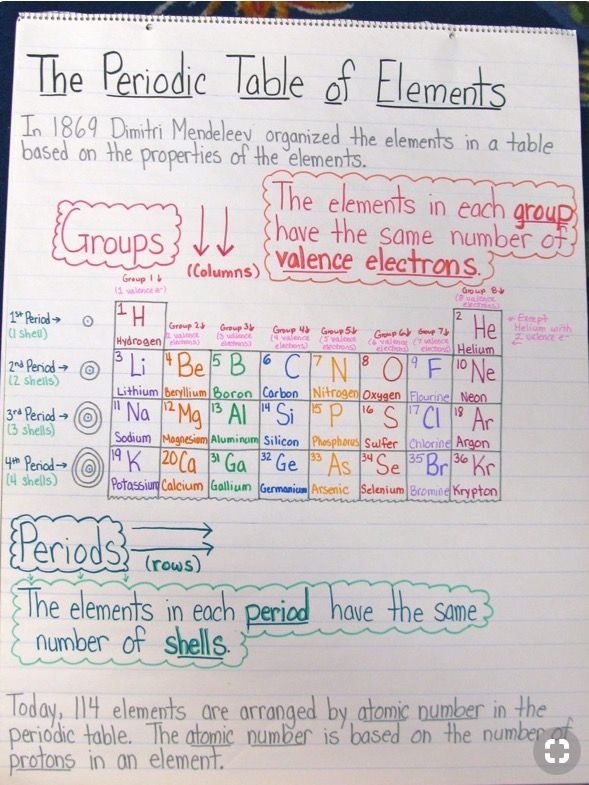 The Periodic Table of Elements
In 1869 Dimitri Mendeleev organized the elements in a table
based on the properties of the elements.
Groups
(Columns)
The elements in each group
have the same number of
valence electrons.
Group 1
(1 valence e⁻)
Group 2
(2 valence electrons)
Group 3
(3 valence electrons)
Group 4
(4 valence electrons)
Group 5
(5 valence electrons)
Group 6
(6 valence electrons)
Group 7
(7 valence electrons)
Group 8
(8 valence electrons)
* Except
Helium with
2 valence e⁻
1st Period →
(1 shell)
1 H Hydrogen
2 He Helium
2nd Period →
(2 shells)
3 Li Lithium
4 Be Beryllium
5 B Boron
6 C Carbon
7 N Nitrogen
8 O Oxygen
9 F Flourine
10 Ne Neon
3rd Period →
(3 shells)
11 Na Sodium
12 Mg Magnesium
13 Al Aluminum
14 Si Silicon
15 P Phosphorus
16 S Sulfer
17 Cl Chlorine
18 Ar Argon
4th Period →
(4 shells)
19 K Potassium
20 Ca Calcium
31 Ga Gallium
32 Ge Germanium
33 As Arsenic
34 Se Selenium
35 Br Bromine
36 Kr Krypton
Periods
(rows)
The elements in each period have the same
number of shells.
Today, 114 elements are arranged by atomic number in the
periodic table. The atomic number is based on the number of
protons in an element.